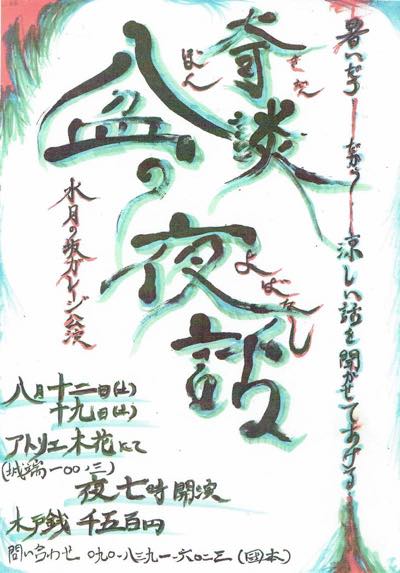 暑いだろーだからー涼しい話を聞かせてあげる…
奇談
きだん
盆の夜話
ぼん
よばなし
水月の坂ガレージ公演
八月十二日(土)
十九日(土)
アトリエ木花にて
(城端一〇〇ノ三)
夜七時開演
木戸銭 千五百円
問い合わせ 〇九〇-八三九一-六〇二三